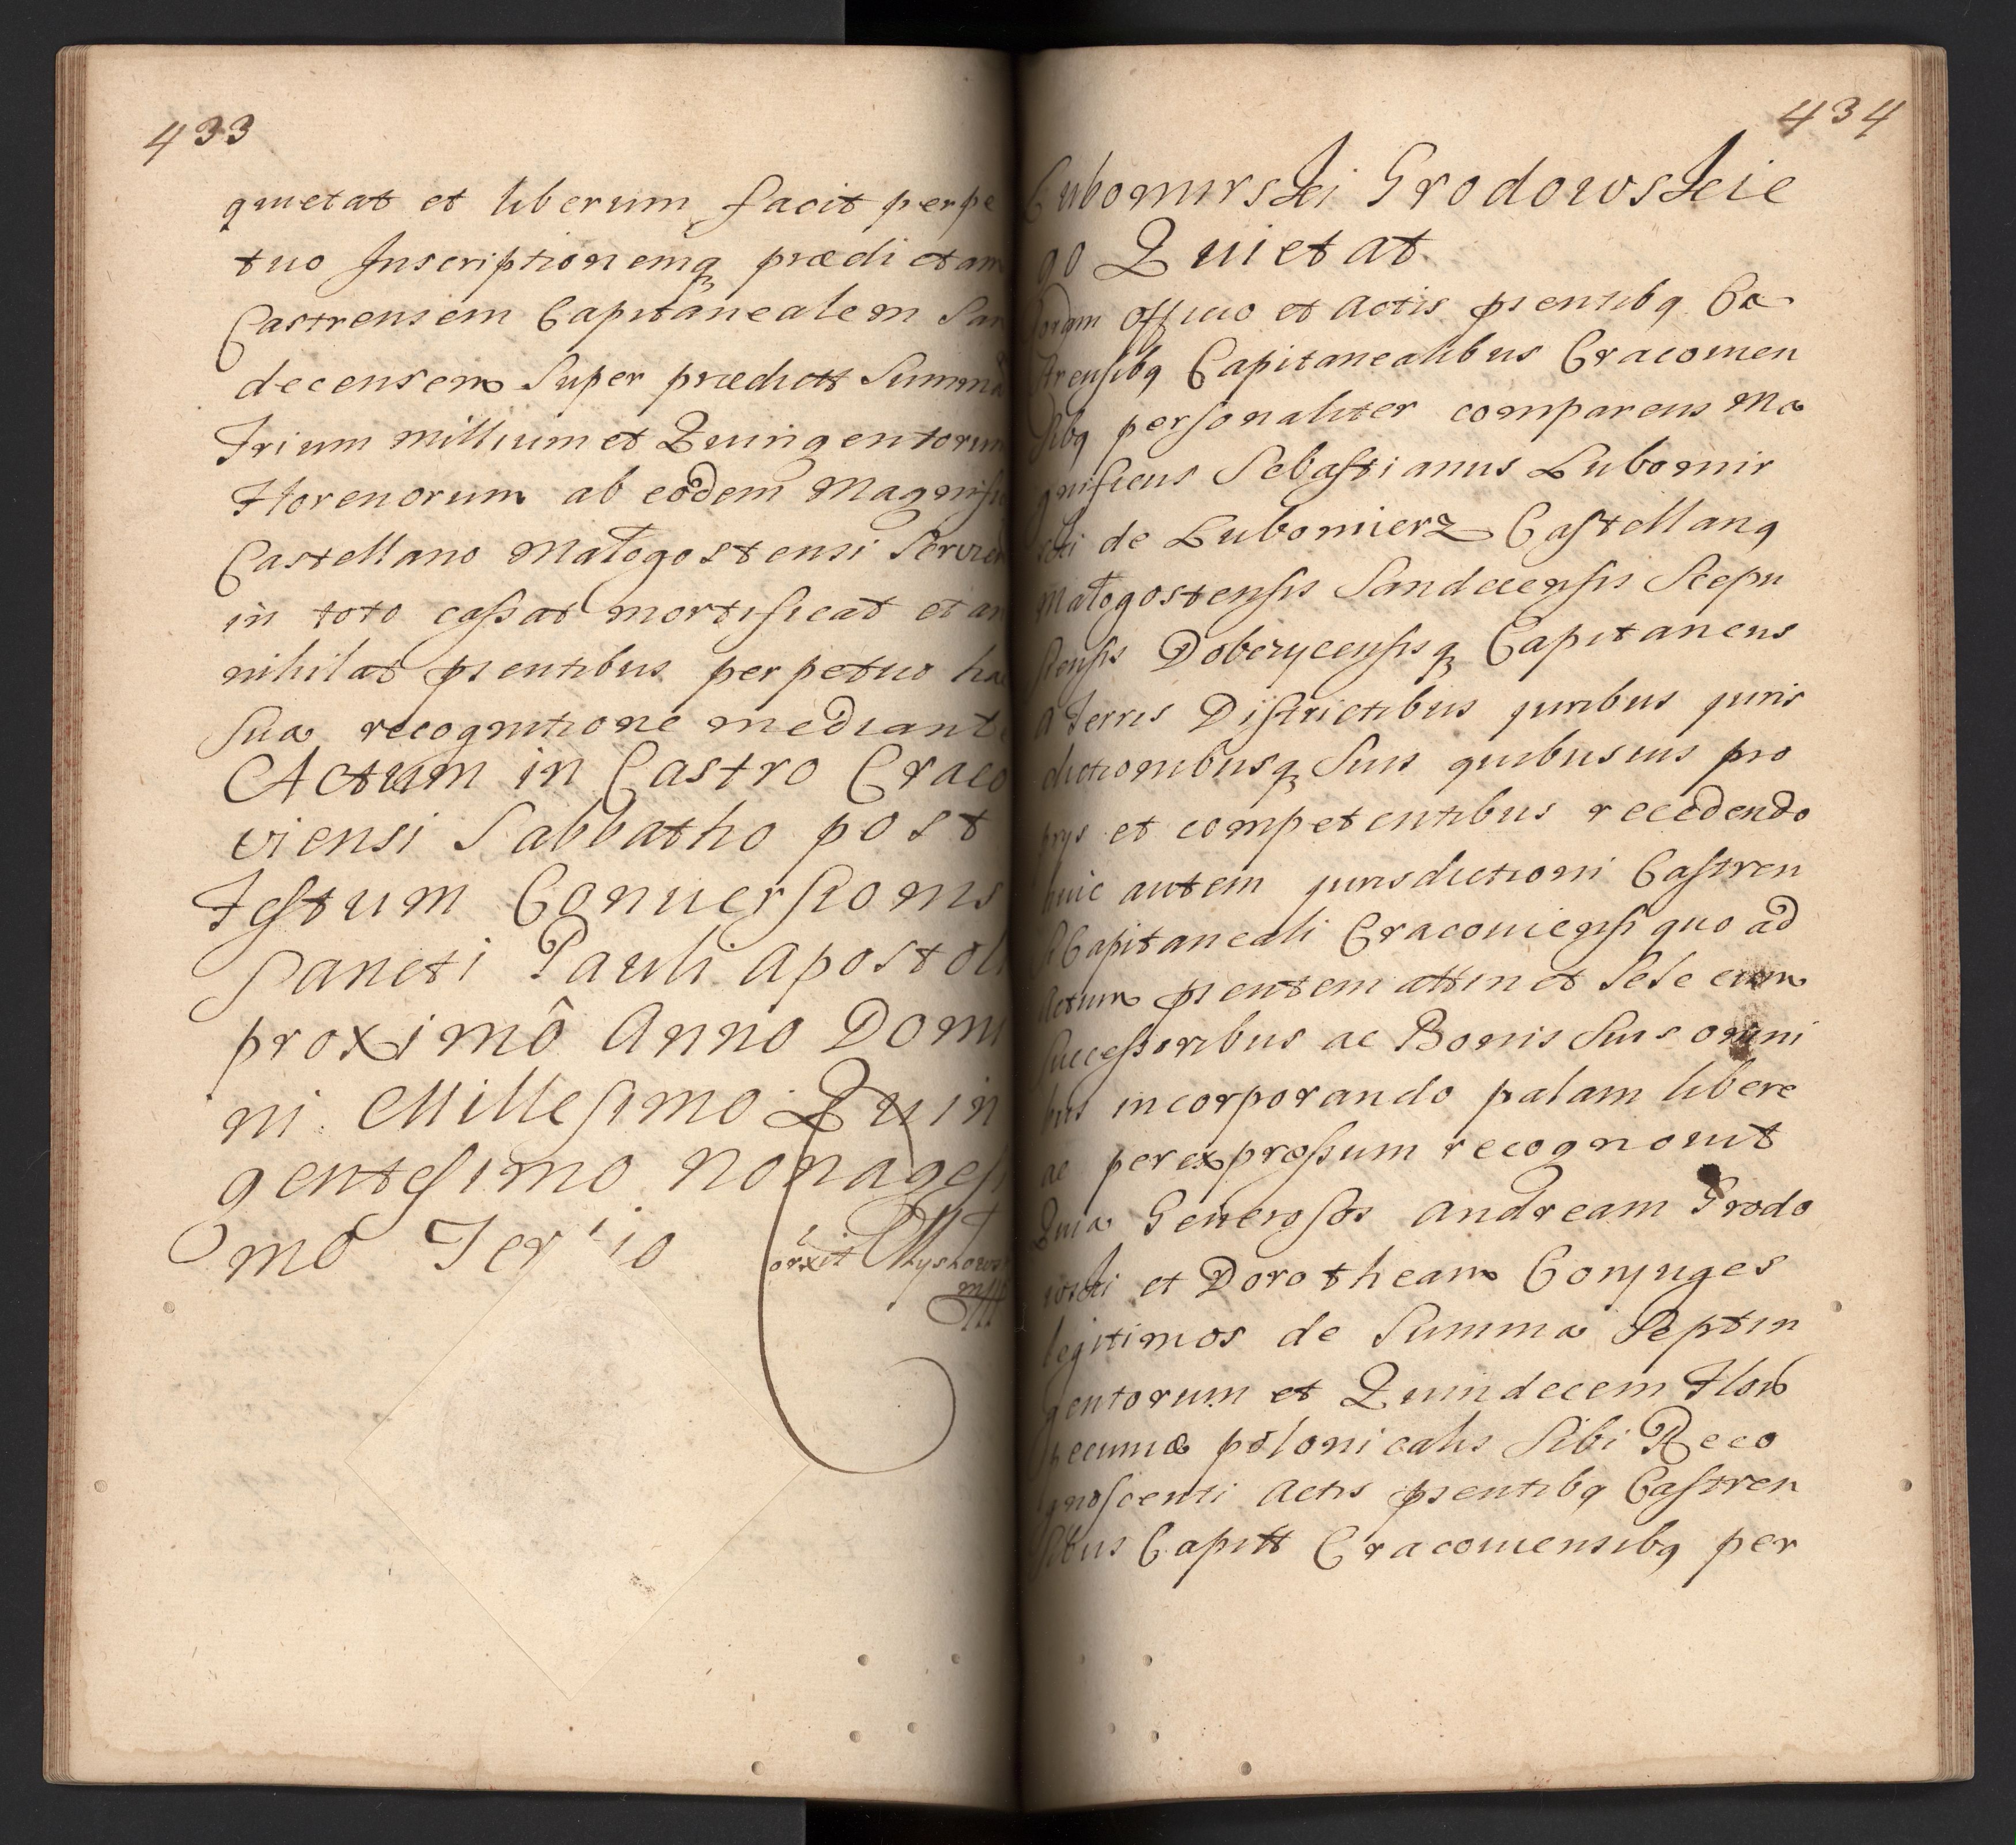 433
quietat et liberum facit perpe
tuo Inscriptionemq prædictam
Castrensem Capitanealem San
decensem Super prædictt Summa
Trium millium et Quingentorum
Florenorum ab eodem Magnifi
Castellano Małogostensi Servien
in toto cassat mortificat et an
nihilat pntibus perpetuo hac
sua recognitione mediante
Actum in Castro Craco
viensi Sabbatho post
Festum Conuersionis
Sancti Pauli Apostoli
proximô Anno Domi
ni Millesimo Quin
gentesimo nonagesi
mo Tertio
434
Lubomirski Grodowskie
go Quietat
Coram Officio et Actis pntibq Ca
strensibq Capitanealibus Cracouien
sibq personaliter comparens Ma
gnificus Sebastianus Lubomir
ski de Lubomierz Castellanq
Małogostensis Sandecensis Scepu
siensis Dobczycensisq Capitaneus
A Terris Districtibus juribus juris
dictionibusq Suis quibusuis pro
prys et competentibus recedendo
huic autem jurisdictioni Castren
si Capitaneali Cracouiensi quo ad
Actum pntem attinet Sese cum
Successoribus ac Bonis Suis omni
bus incorporando palam libere
ac per expressum recognouit
Quia Generosos Andream Grodo
wski et Dorotheam Conjuges
legitimos de Summa Septin
gentorum et Quindecem Flor
pecuniæ polonicalis Sibi Reco
gnoscenti Actis pntibq Castren
sibus Capitt Cracouiensibq per